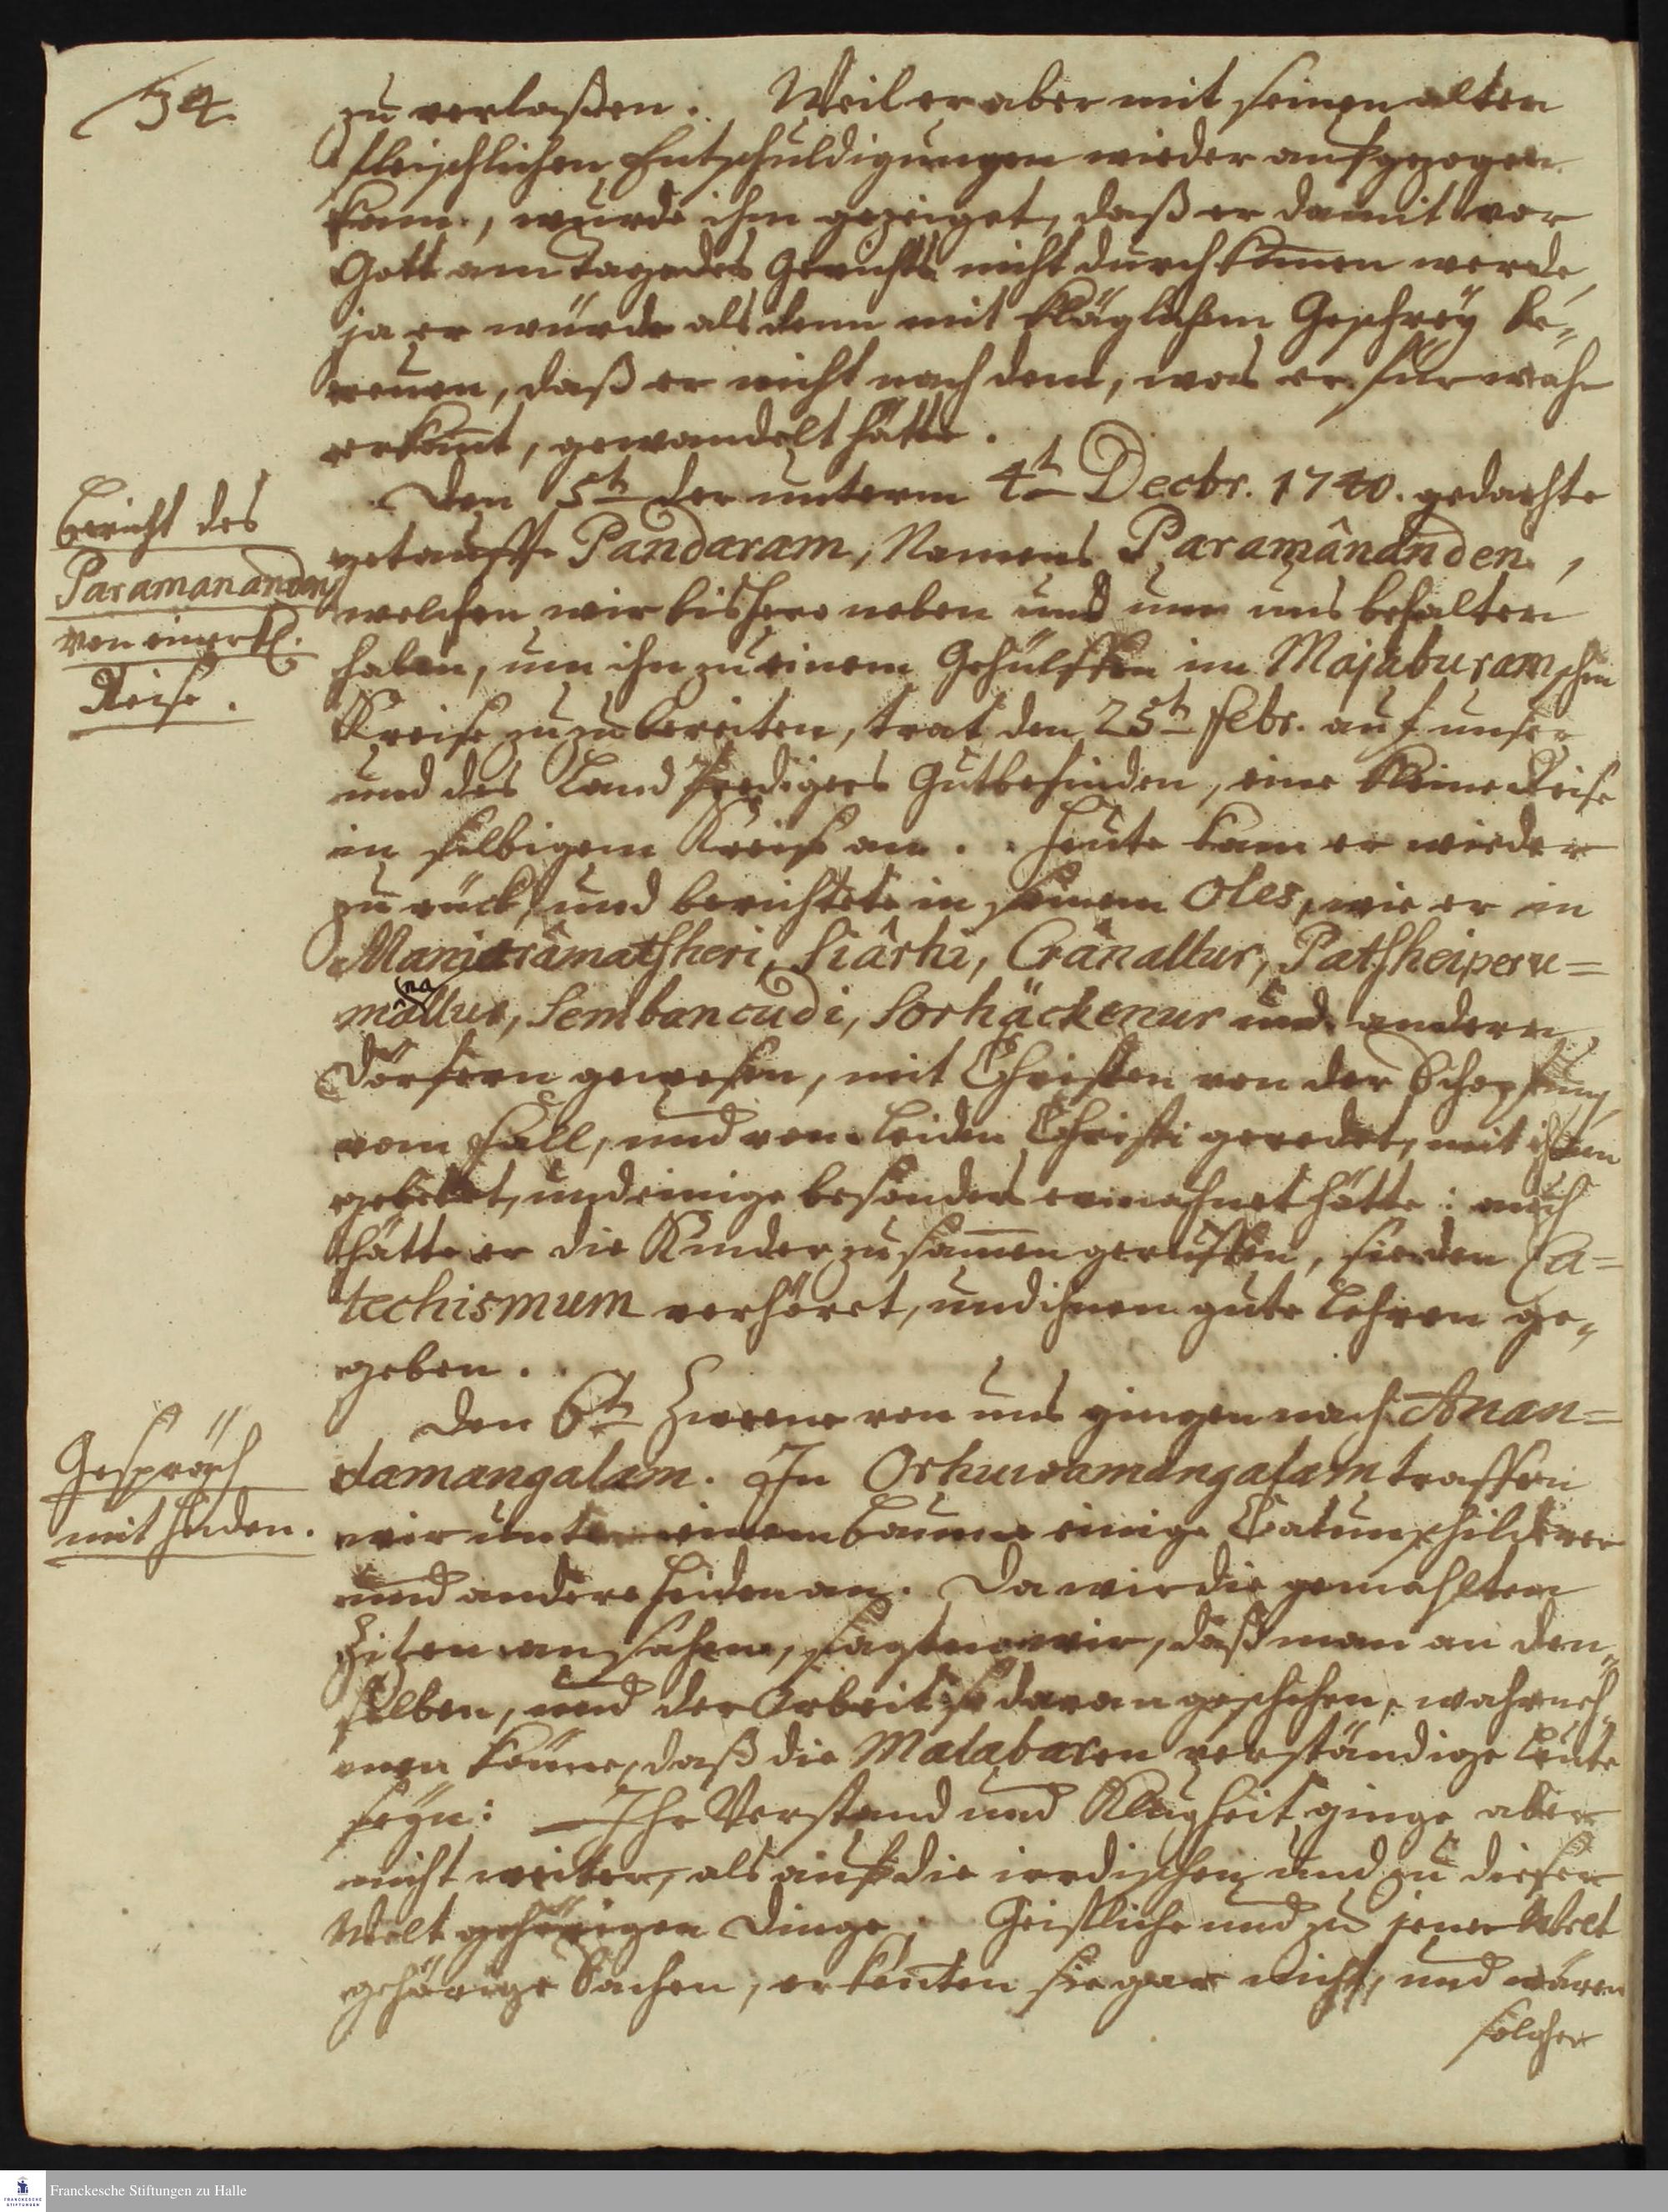 34.
zu verlaßen. Weil er aber mit seinen alten
fleischlichen Entschuldigungen wieder aufgezogen
kam, wurde ihm gezeiget, daß er damit vor
Gott am Tage des Gerichts nicht durchkom̅en werde,
ja er würde alsdenn mit kläglichem Geschrey be-
reuen, daß er nicht nach dem, was er für wahr
erkan̅t, gewandelt hätte.
Bericht des
Paramananden
von einer kl.
Reise.
Den 5t. der unterm 4t. Decbr. 1740. gedachte
getauffte Pandaram, Namens Paramânânden,
welchen wir bisher neben und um uns behalten
haben, um ihn zu einem Gehülffen im Majaburamschen
Kreise zuzubereiten, trat den 25t. Febr. auf unser
und des Landpredigers Gutbefinden, eine kleine Reise
in selbigem Kreise an. Heute kam er wieder
zurück, und berichtete in seinem Oles, wie er in
Manjarâmatsheri, Siârhi, Cränallur, Patsheiperu=
manallur, Sembancudi, Sorhäckenur und andern
Dörfern gewesen, mit Christen von der Schöpfung,
vom Fall, und vom Leiden Christi geredet, mit ihnen
gebetet, und einige besonders ermahnet hätte: auch
hätte er die Kinder zusam̅en geruffen, sie den Ca=
techismum verhöret, und ihnen gute Lehren ge-
geben.
Gespräch
mit Heiden.
Den 6t. Zweene von uns gingen nach Anan=
damangalam. In Orhuwamangalam traffen
wir unter einem Baume einige Catunschilderer
und andere Heiden an. Da wir die gemahlten
Zitzen ansahen, sagten wir, daß man an den-
selben, und der Arbeit so daran geschehen, wahrneh-
men könne, daß die Malabaren verständige Leute
seyn: Ihr Verstand und Klugheit ginge aber
nicht weiter, als auf die irdischen und zu dieser
Welt gehörigen Dinge. Geistliche und zu jener Welt
gehörige Sachen, erken̅ten sie gar nicht, und wären
solcher
Franckesche Stiftungen zu Halle